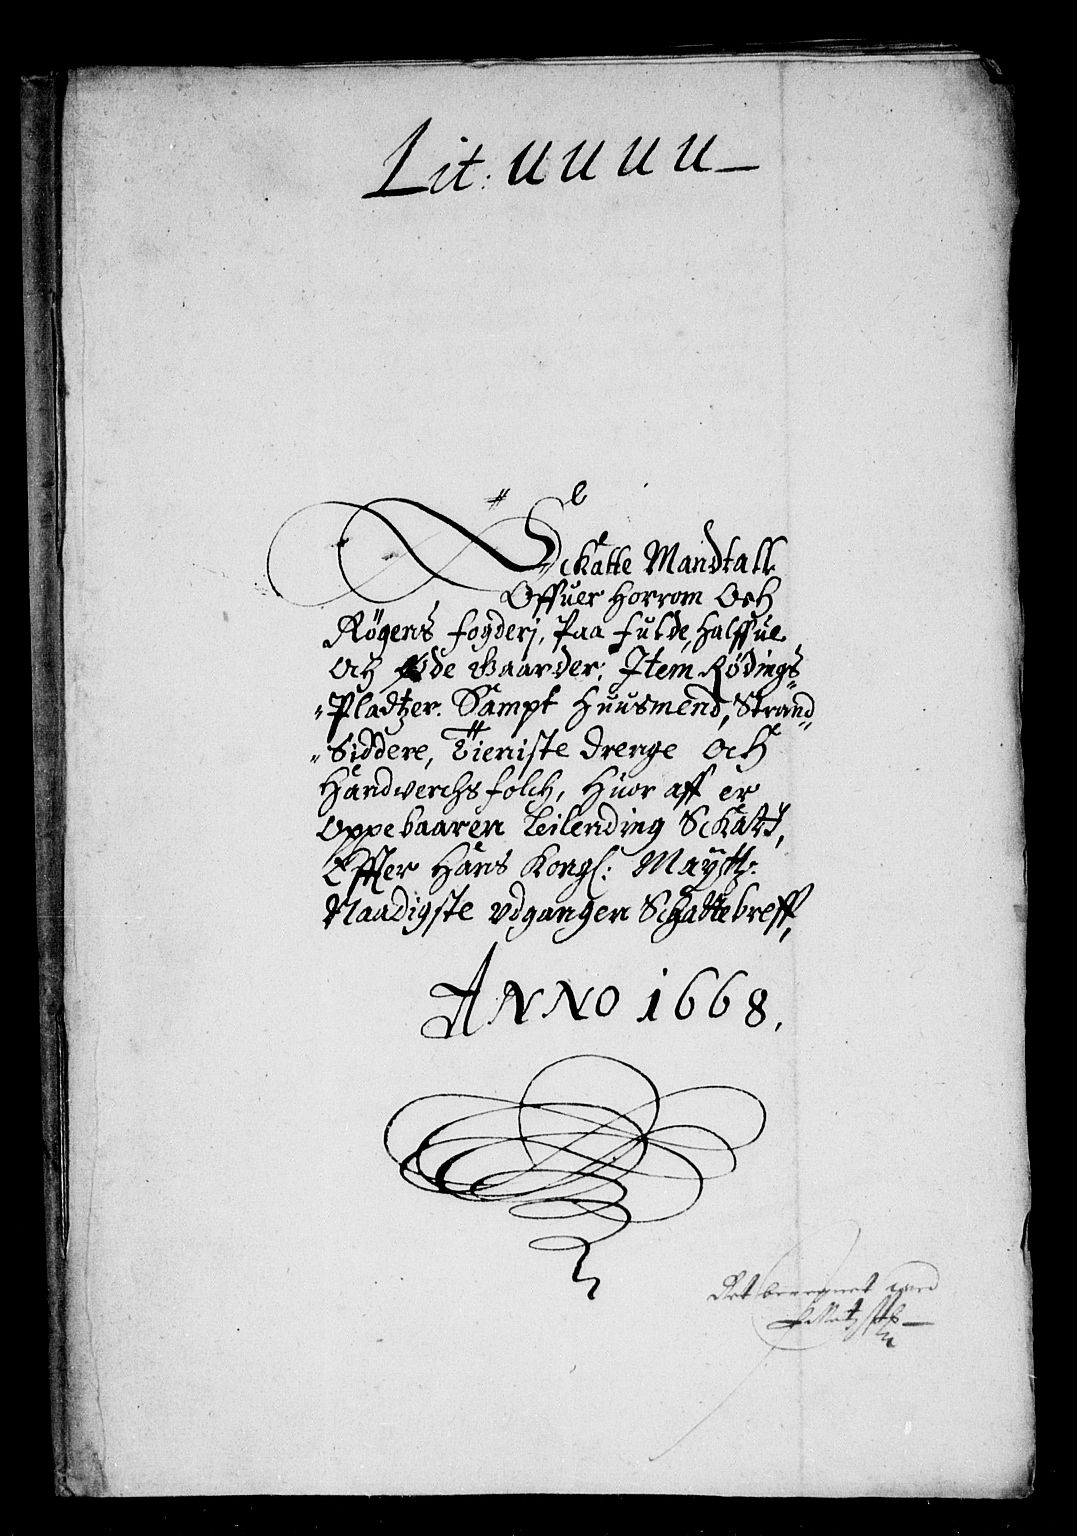 Lit: UUUU
Sckatte Mandtall
Offuer Horrom Och
Røgens fogderj, Paa fulde, halffue
och øde Gaarder, Jtem Rødings
Pladtzer. Sampt Huusmend, Strand
Siddere, Tieniste drenge och
Handverchs folch, Huor aff er
Oppebaaren Leilending Sckatt,
Effter Hans Kongl: Maytt:
Naadigste vdgangen Schattebreff,
ANNO 1668,